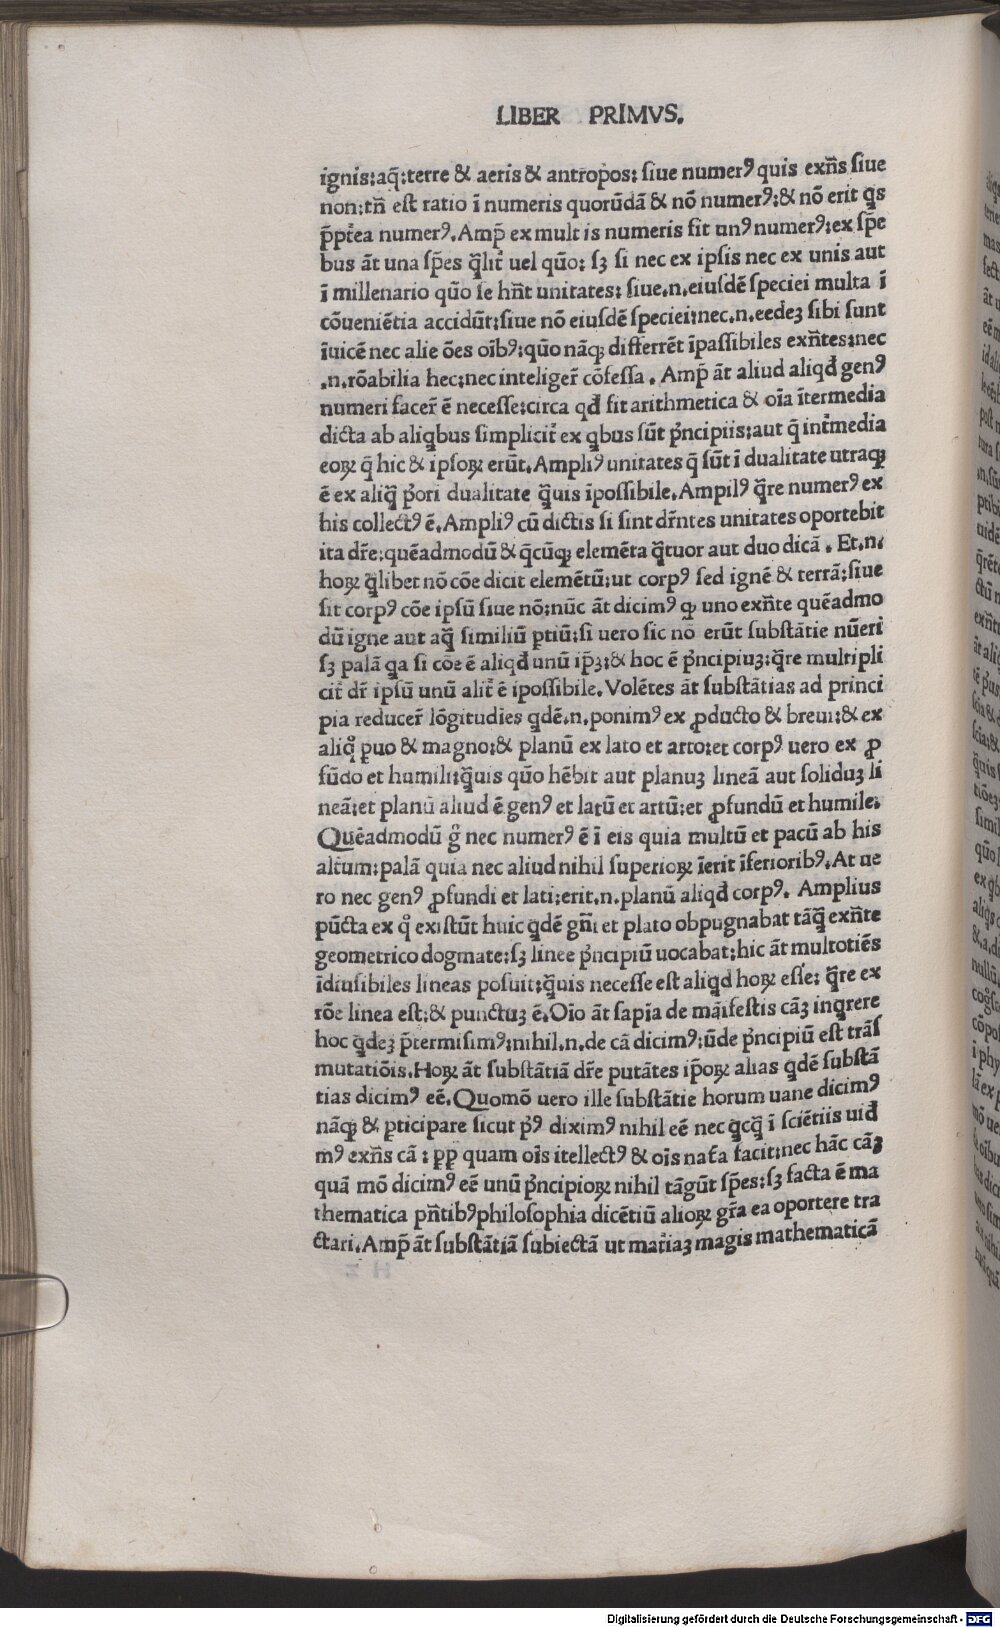 LIBER PRIMVS.
ignis:aq̃:terre & aeris & antropos: ſiue numerꝰ quis exñs ſiue
non:tñ eſt ratio ĩ numeris quorũdã & nõ numerꝰ:& nõ erit q̃s
p̃pt̃ea numerꝰ. Amp̃ ex mult is numeris fit unꝰ numerꝰ:ex ſp̃e
bus ãt una ſp̃es q̃lit̃ uel quõ: ſꝫ ſi nec ex ipſis nec ex unis aut
ĩ millenario quõ ſe hñt unitates: ſiue.n.eiuſdẽ ſpeciei multa ĩ
cõueniẽtia accidũt:ſiue nõ eiuſdẽ ſpeciei:nec.n.eedeꝫ ſibi ſunt
ĩuicẽ nec alie ões oĩbꝰ:quõ nãqꝫ differrẽt ĩpaſſibiles exñtes:nec
.n.rõabilia hec:nec inteliger̃ cõfeſſa. Amp̃ ãt aliud aliqđ genꝰ
numeri facer̃ ẽ neceſſe:circa qđ fit arithmetica & oĩa ĩtermedia
dicta ab aliqbus ſimplicit̃ ex qbus ſũt pͥncipiis:aut q̃ int̃media
eoꝝ q̃ hic & ipſoꝝ erũt. Ampliꝰ unitates q̃ ſũt ĩ dualitate utraqꝫ
ẽ ex aliq̃ pͥori dualitate q̃uis ĩpoſſibile. Ampilꝰ q̃re numerꝰ ex
his collectꝰ ẽ. Ampliꝰ cũ dictis ſi ſint dr̃ntes unitates oportebit
ita dr̃e:quẽadmodũ & q̃cũqꝫ elemẽta q̃tuor aut duo dicã. Et.n.
hoꝝ q̃libet nõ cõe dicit elemẽtũ:ut corpꝰ ſed ignẽ & terrã:ſiue
ſit corpꝰ cõe ipſũ ſiue nõ:nũc ãt dicimꝰ qꝫ uno exñte quẽadmo
dũ igne aut aq̃ ſimiliũ ꝑtiũ:ſi uero ſic nõ erũt ſubſtãtie nũeri
ſꝫ palã qa ſi cõe ẽ aliqđ unũ ip̃ꝫ:& hoc ẽ pͥncipiuꝫ:q̃re multipli
cit̃ dr̃ ipſũ unũ alit̃ ẽ ipoſſibile. Volẽtes ãt ſubſtãtias ad princi
pia reducer̃ lõgitudĩes qdẽ.n.ponimꝰ ex ꝓducto & breui:& ex
aliqͦ ꝑuo & magno:& planũ ex lato et arto:et corpꝰ uero ex ꝓ
fũdo et humili:q̃uis quõ hẽbit aut planuꝫ lineã aut ſoliduꝫ li
neã:et planũ aliud ẽ genꝰ et latũ et artũ:et ꝓfundũ et humile:
Quẽadmodũ gͦ nec numerꝰ ẽ ĩ eis quia multũ et pacũ ab his
altum:palã quia nec aliud nihil ſuperioꝝ ĩerit ĩferioribꝰ. At ue
ro nec genꝰ ꝓfundi et lati:erit.n.planũ aliqđ corpꝰ. Amplius
pũcta ex qͦ exiſtũt huic qdẽ gñi et plato obpugnabat tãq̃ exñte
geometrico dogmate:ſꝫ linee pͥncipiũ uocabat:hic ãt multotiẽs
ĩdiuſibiles lineas poſuit:q̃uis neceſſe eſt aliqđ hoꝝ eſſe: q̃re ex
rõe linea eſt:& punctuꝫ ẽ. Oĩo ãt ſapĩa de mãifeſtis cãꝫ inqrere
hoc qdeꝫ p̃termiſimꝰ:nihil.n.de cã dicimꝰ:ũde pͥncipiũ eſt trãſ
mutatiõis. Hoꝝ ãt ſubſtãtiã dr̃e putãtes ip̃oꝝ alias qdẽ ſubſtã
tias dicimꝰ eẽ. Quomõ uero ille ſubſtãtie horum uane dicimꝰ
nãqꝫ & ꝑticipare ſicut pͥꝰ diximꝰ nihil eẽ nec qcq̃ ĩ ſciẽtiis uiđ
mꝰ exñs cã : ꝓꝑ quam oĩs itellectꝰ & oĩs nat̃a facit:nec hãc cãꝫ
quã mõ dicimꝰ eẽ unũ pͥncipioꝝ nihil tãgũt ſp̃es:ſꝫ facta ẽ ma
thematica pñtibꝰphiloſophia dicẽtiũ alioꝝ gr̃a ea oportere tra
ctari. Amp̃ ãt ſubſtãtiã ſubiectã ut mat̃iaꝫ magis mathematicã
Digitalisierung gefördert durch die Deutsche Forschungsgemeinschaft - DFG